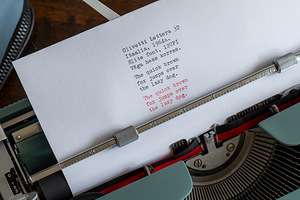 Olivetti Lettera 32
Itaalia, 1960s.
Elite font, 12CPI
Väga heas korras.
The quick brown
fox jumps over
the lazy dog.
The quick brown
fox jumps over
the lazy dog.